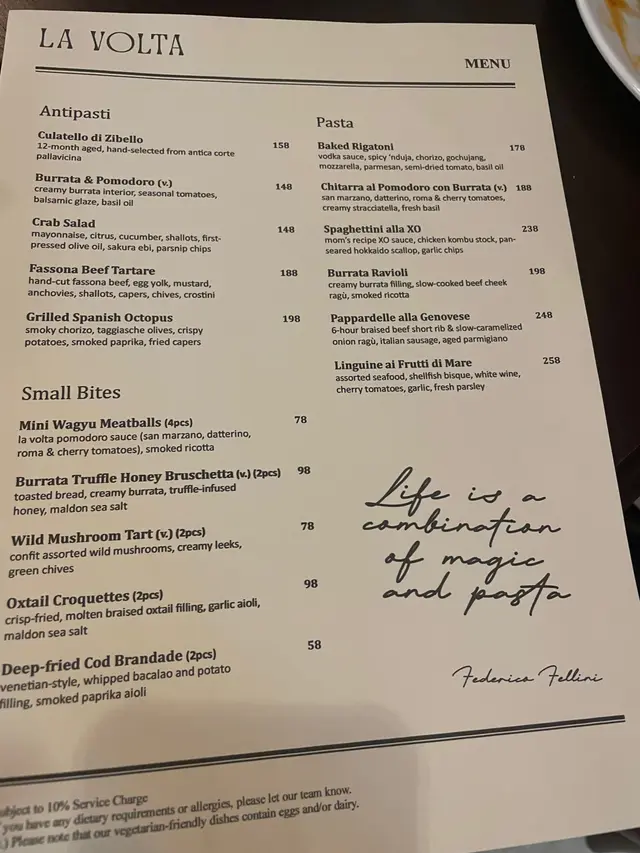 LA VOLTA
MENU
Antipasti
Culatello di Zibello 158
12-month aged, hand-selected from antica corte
pallavicina
Burrata & Pomodoro (v.) 148
creamy burrata interior, seasonal tomatoes,
balsamic glaze, basil oil
Crab Salad 148
mayonnaise, citrus, cucumber, shallots, first-
pressed olive oil, sakura ebi, parsnip chips
Fassona Beef Tartare 188
hand-cut fassona beef, egg yolk, mustard,
anchovies, shallots, capers, chives, crostini
Grilled Spanish Octopus 198
smoky chorizo, taggiasche olives, crispy
potatoes, smoked paprika, fried capers
Small Bites
Mini Wagyu Meatballs (4pcs) 78
la volta pomodoro sauce (san marzano, datterino,
roma & cherry tomatoes), smoked ricotta
Burrata Truffle Honey Bruschetta (v.) (2pcs) 98
toasted bread, creamy burrata, truffle-infused
honey, maldon sea salt
Wild Mushroom Tart (v.) (2pcs) 78
confit assorted wild mushrooms, creamy leeks,
green chives
Oxtail Croquettes (2pcs) 98
crisp-fried, molten braised oxtail filling, garlic aioli,
maldon sea salt
Deep-fried Cod Brandade (2pcs) 58
venetian-style, whipped bacalao and potato
filling, smoked paprika aioli
Pasta
Baked Rigatoni 178
vodka sauce, spicy 'nduja, chorizo, gochujang,
mozzarella, parmesan, semi-dried tomato, basil oil
Chitarra al Pomodoro con Burrata (v.) 188
san marzano, datterino, roma & cherry tomatoes,
creamy stracciatella, fresh basil
Spaghettini alla XO 238
mom's recipe XO sauce, chicken kombu stock, pan-
seared hokkaido scallop, garlic chips
Burrata Ravioli 198
creamy burrata filling, slow-cooked beef cheek
ragù, smoked ricotta
Pappardelle alla Genovese 248
6-hour braised beef short rib & slow-caramelized
onion ragù, italian sausage, aged parmigiano
Linguine ai Frutti di Mare 258
assorted seafood, shellfish bisque, white wine,
cherry tomatoes, garlic, fresh parsley
Life is a
combination
of magic
and pasta
Federico Fellini
ubject to 10% Service Charge
you have any dietary requirements or allergies, please let our team know.
.) Please note that our vegetarian-friendly dishes contain eggs and/or dairy.